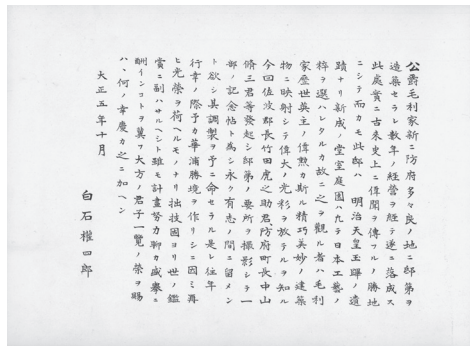 公爵毛利家新ニ防府多々良ノ地ニ邸第ヲ
造築セラレ数年ノ経営ヲ経テ遂ニ落成ス
此處實ニ古来史上ニ偉聞ヲ傳フルノ勝地
ニシテ而カモ此邸ハ 明治天皇玉蹕ノ遺
蹟ナリ新成ノ堂室庭園ハ凡テ日本工藝ノ
粋ヲ選ハレタルカ故ニ之ヲ觀ル者ハ毛利
家歴世英主ノ偉勲カ斯ル精巧美妙ノ建築
物ニ映射シテ偉大ノ光彩ヲ放テルヲ知ル
今回佐波郡長竹田虎之助君、防府町長中山
脩三君等發起シ邸第ノ要所ヲ撮影シテ一
部ノ記念帖ト為シ永ク有志ノ間ニ留メン
ト欲シ其調製ヲ予ニ命セラル是レ往年
行幸ノ際予カ華浦勝境ヲ作リシニ因ミ再
ヒ光榮ヲ荷ヘルモノナリ拙技固ヨリ世ノ鑑
賞ニ副ハサルヘシト雖モ計畫努力聊カ盛擧ニ
酬インコトヲ冀フ大方ノ君子一覽ノ榮ヲ賜
ハヽ何ノ幸慶カ之ニ加ヘン
大正五年十月
白石權四郎